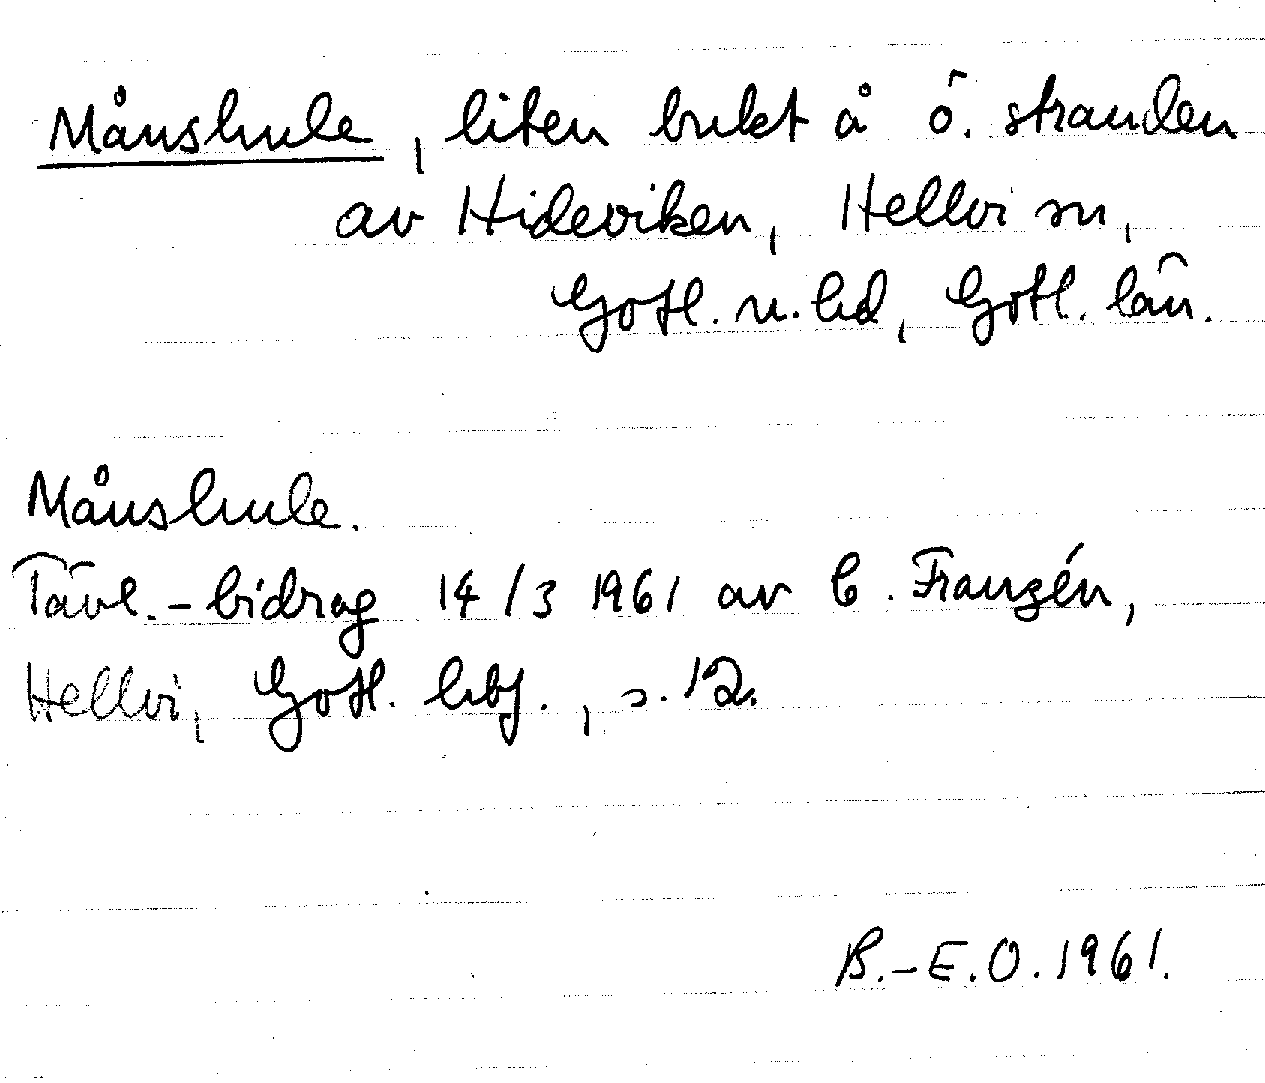 Månshule, liten bukt å ö. stranden
av Hideviken, Hellvi sn,
Gotl. n. hd, Gotl. län.
Månshule.
Tävl.-bidrag 14/3 1961 av C. Franzén,
Hellvi, Gotl. hbf., s. 12.
B.-E.O. 1961.